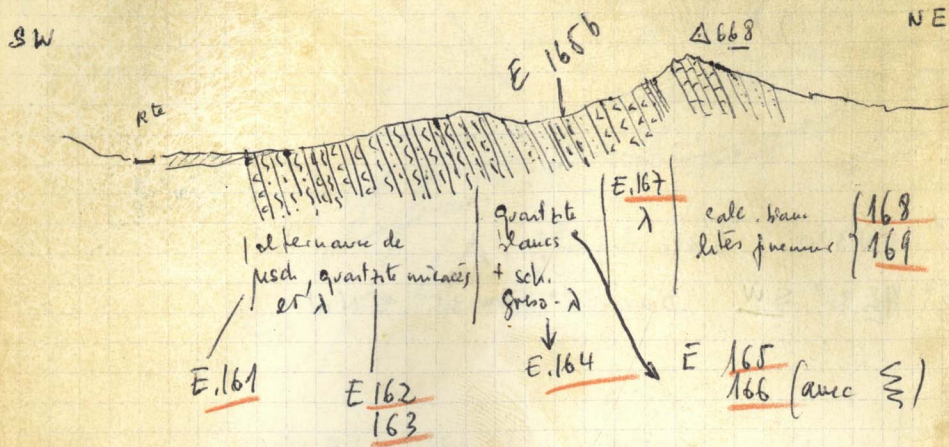 SW
NE
△668
E 165b
Rte
alternance de
μsch, quartzite micacés
et λ
quartzite
blancs
+ sch.
greso-λ
E.167
λ
calc. blanc
lités
168
169
E.161
E 162
163
E.164
E 165
166 (avec